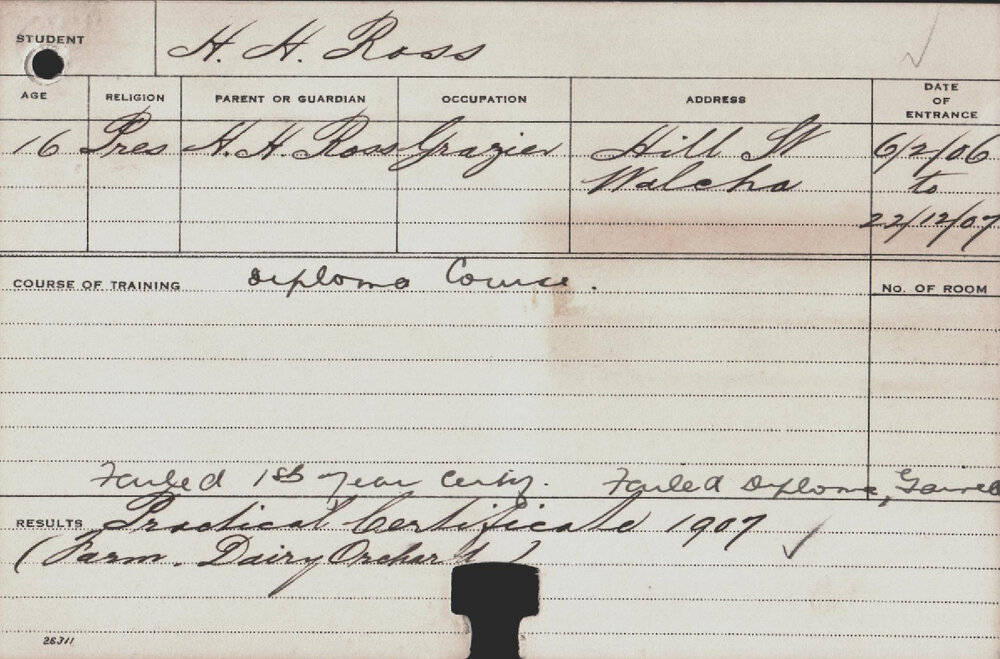 STUDENT H. H. Ross
AGE RELIGION PARENT OR GUARDIAN OCCUPATION ADDRESS DATE OF ENTRANCE
16 Pres H. H. Ross Grazier Hill St 6/2/06
Walcha to
22/12/07
COURSE OF TRAINING Diploma Course. No. OF ROOM
Failed 1st year Certif. Failed Diploma, Gained
RESULTS Practical Certificate 1907
(Farm. Dairy Orchard)
26311